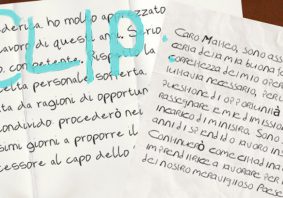 CLIP.
ho molto apprezzato
avoro di questi anni. Serio,
competente. Rispetto la
celta personale sofferta,
ta da ragioni di opportun
ondivido. Procederò nei
simi giorni a proporre il
cessore al capo dello
CARO MATTEO, SONO
CERTA DELLA MIA BUONA
CORRETTEZZA DEL MIO OPER
TUTTAVIA NECESSARIO, PER
QUESTIONE DI OPPORTUNITÀ
RASSEGNARE LE MIE DIMISSION
INCARICO DI MINISTRO. SONO
ANNI DI SPLENDIDO LAVORO
CONTINUERÒ COME CITTADINA
IMPRENDITRICE A LAVORARE PER
DEL NOSTRO MERAVIGLIOSO PAESE